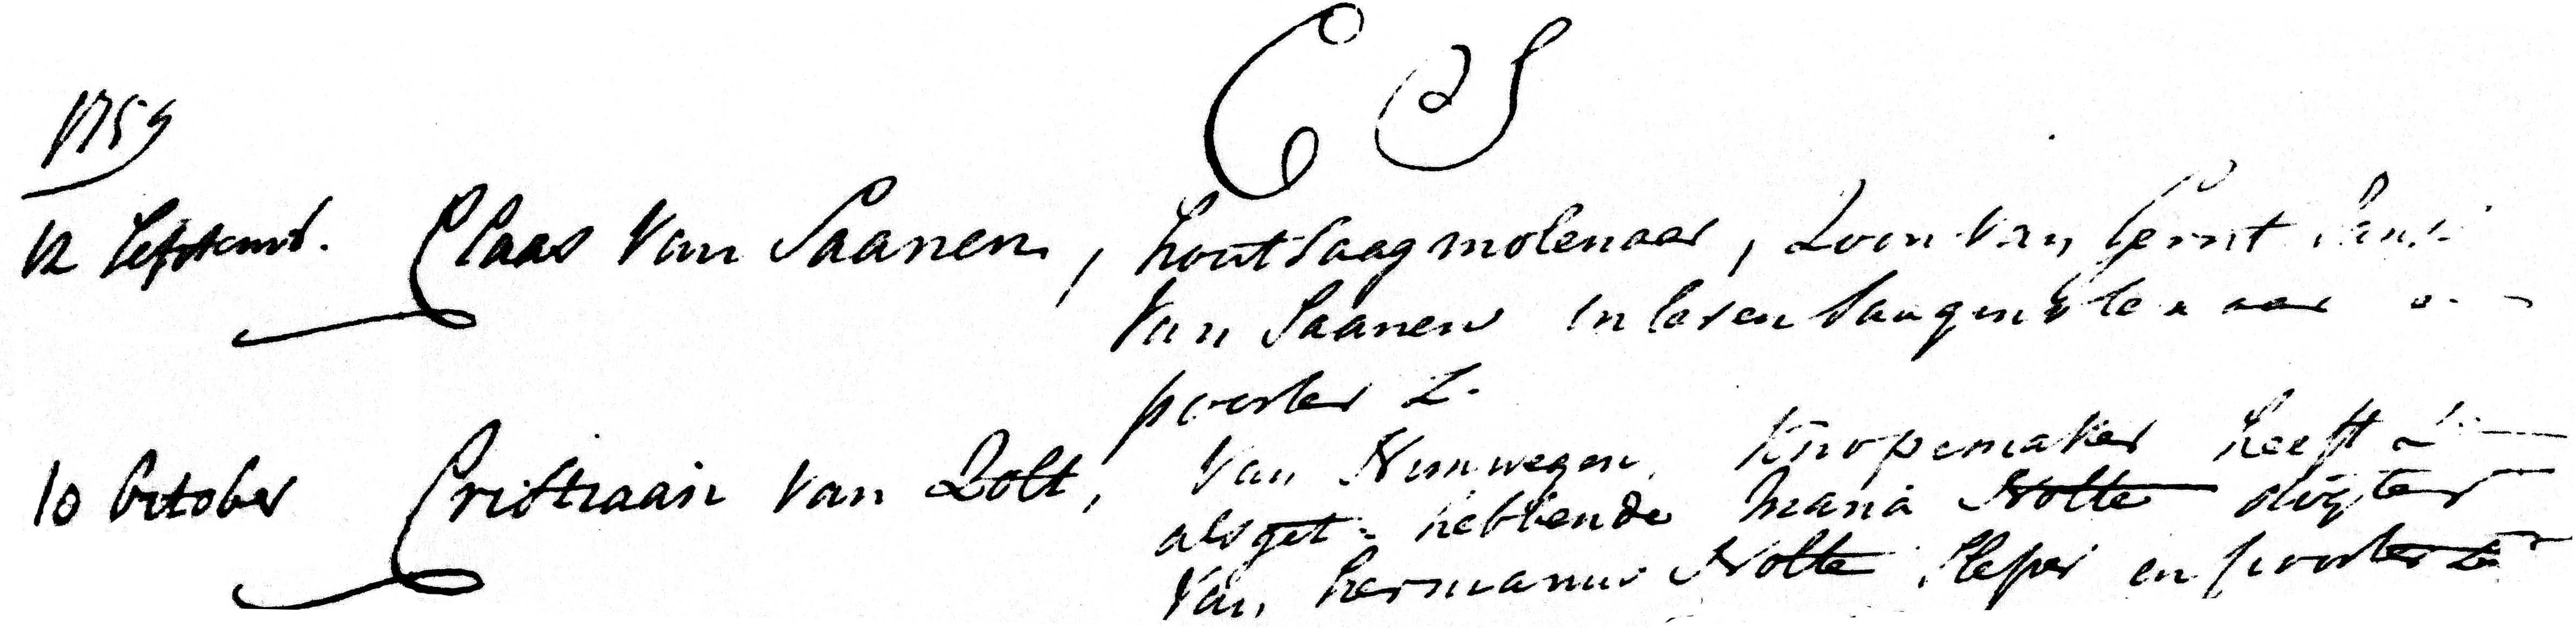 C S
1759
12 Septemb. Claas Van Saanen, houtsaagmolenaar, Zoon van Gerrit Jansz
Van Saanen in leven Saagmolenaar en
poorter Z.
10 October Cristiaan van Zolt, Van Nimwegen, Knopemaker heeft
als get. hebbende Maria Nolte dogter
Van hermanus Nolte Sleper en poorter